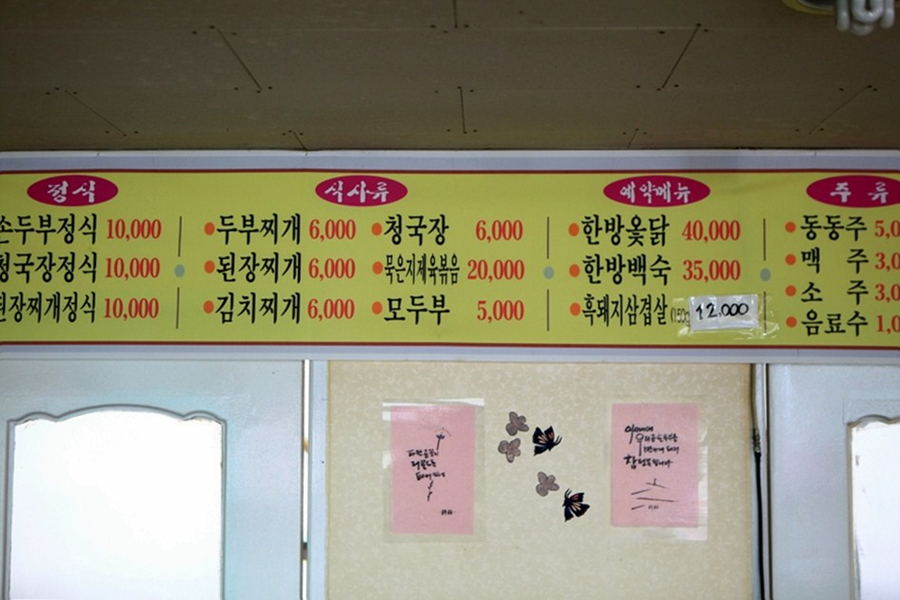 정식
손두부정식 10,000
청국장정식 10,000
된장찌개정식 10,000
식사류
두부찌개 6,000
된장찌개 6,000
김치찌개 6,000
청국장 6,000
묵은지제육볶음 20,000
모두부 5,000
예약메뉴
한방옻닭 40,000
한방백숙 35,000
흑돼지삼겹살 (150g 12,000
주류
동동주 5,0
맥주 3,0
소주 3,0
음료수 1,0